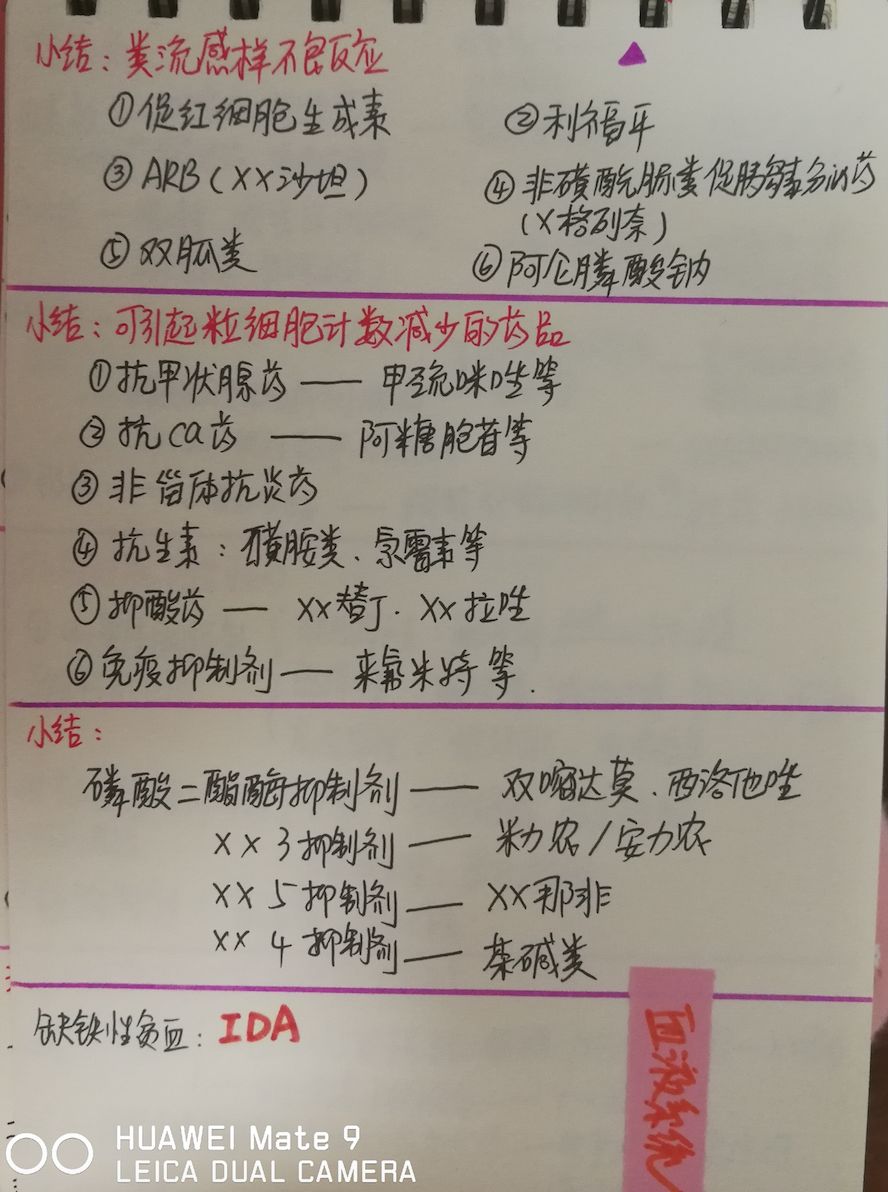 小结：类流感样不良反应
①促红细胞生成素 ②利福平
③ARB（XX沙坦） ④非磺酰脲类促胰岛素分泌药
（X格列奈）
⑤双胍类 ⑥阿仑膦酸钠
小结：可引起粒细胞计数减少的药品
①抗甲状腺药 —— 甲巯咪唑等
②抗CA药 —— 阿糖胞苷等
③非甾体抗炎药
④抗生素：磺胺类、氯霉素等
⑤抑酸药 — XX替丁．XX拉唑
⑥免疫抑制剂 —— 来氟米特等．
小结：
磷酸二酯酶抑制剂 —— 双嘧达莫、西洛他唑
XX3抑制剂 —— 米力农/安力农
XX5抑制剂 —— XX那非
XX4抑制剂 —— 茶碱类
缺铁性贫血：IDA
血液系统
HUAWEI Mate 9
LEICA DUAL CAMERA